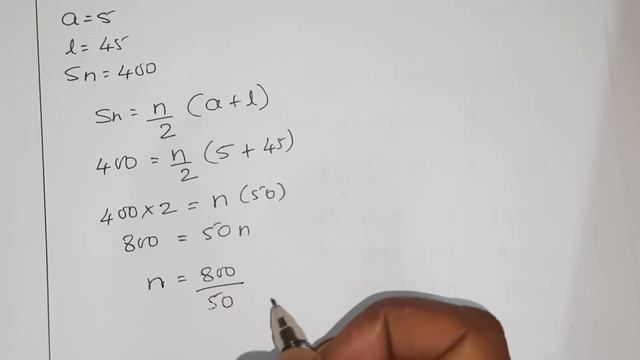 a=5
l=45
Sn=400
Sn = n/2 (a+l)
400 = n/2 (5+45)
400×2 = n(50)
800 = 50n
n = 800/50